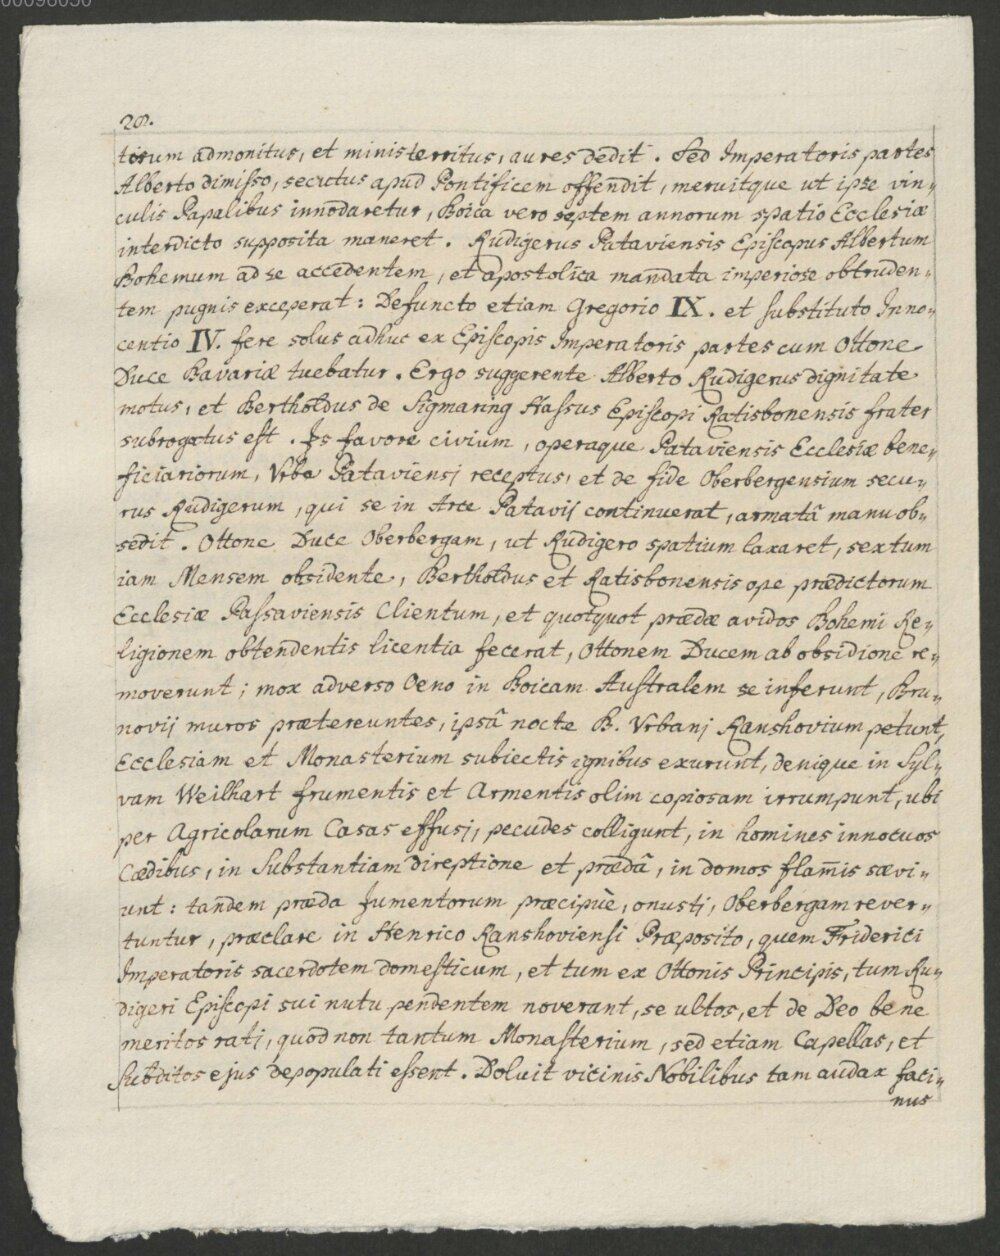 00096050
28.
torum admonitus, et ministerritus, aures dedit. Sed Imperatoris partes
Alberto dimisso, secutus apud Pontificem offendit, meruitque ut ipse vin„
culis Papalibus innodaretur, Boica vero septem annorum spatio Ecclesiæ
interdicto supposita maneret. Rudigerus Pataviensis Episcopus Albertum
Bohemum ad se accedentem, et apostolica mandata imperiose obtruden„
tem pugnis exceperat: Defuncto etiam Gregorio IX. et substituto Inno„
centio IV. fere solus adhuc ex Episcopis Imperatoris partes cum Ottone
Duce Bavariæ tuebatur. Ergo suggerente Alberto Rudigerus dignitate
motus, et Bertholdus de Sigmaring Hassus Episcopi Ratisbonensis frater
subrogatus est. Is favore civium, operaque Pataviensis Ecclesiæ bene„
ficiariorum, Vrbe Pataviensj receptus, et de fide Oberbergensium secu„
rus Rudigerum, qui se in Arce Patavij continuerat, armatâ manu ob„
sedit. Ottone Duce Oberbergam, ut Rudigero spatium laxaret, sextum
iam Mensem obsidente, Bertholdus et Ratisbonensis ope prædictorum
Ecclesiæ Passaviensis Clientum, et quotquot prædæ avidos Bohemi Re„
ligionem obtendentis licentia fecerat, Ottonem Ducem ab obsidione re„
moverunt; mox adverso Oeno in Boicam Australem se inferunt, Bru„
novij muros prætereuntes, ipsâ nocte B. Vrbanj Ranshovium petunt,
Ecclesiam et Monasterium subiectis ignibus exurunt, denique in Syl„
vam Weilhart frumentis et Armentis olim copiosam irrumpunt, ubi
per Agricolarum Casas effusj, pecudes colligunt, in homines innocuos
Cædibus, in Substantiam direptione et prædâ, in domos flam̃is sævi„
unt: tandem præda Jumentorum præcipuè, onustj, Oberbergam rever„
tuntur, præclare in Henrico Ranshoviensi Præposito, quem Friderici
Imperatoris sacerdotem domesticum, et tum ex Ottonis Principis, tum Ru„
digeri Episcopi sui nutu pendentem noverant, se ultos, et de Deo bene
meritos ratj, quod non tantum Monasterium, sed etiam Capellas, et
Subditos ejus depopulati essent. Doluit vicinis Nobilibus tam audax faci„
nus